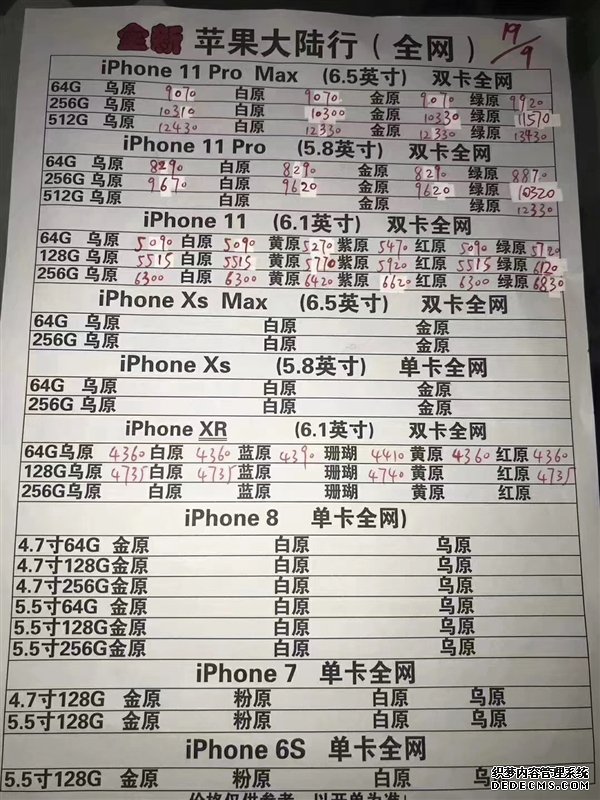 全新 苹果大陆行(全网) 19/9
iPhone 11 Pro Max (6.5英寸) 双卡全网
64G 乌原 9070 白原 9070 金原 9070 绿原 9920
256G 乌原 10310 白原 10300 金原 10330 绿原 11570
512G 乌原 12430 白原 12330 金原 12330 绿原 13430
iPhone 11 Pro (5.8英寸) 双卡全网
64G 乌原 8290 白原 8290 金原 8290 绿原 8870
256G 乌原 9670 白原 9620 金原 9620 绿原 10320
512G 乌原 白原 金原 绿原 12330
iPhone 11 (6.1英寸) 双卡全网
64G 乌原 5090 白原 5090 黄原 5270 紫原 5470 红原 5090 绿原 5720
128G 乌原 5515 白原 5515 黄原 5770 紫原 5920 红原 5515 绿原 6120
256G 乌原 6300 白原 6300 黄原 6420 紫原 6620 红原 6300 绿原 6830
iPhone Xs Max (6.5英寸) 双卡全网
64G 乌原 白原 金原
256G 乌原 白原 金原
iPhone Xs (5.8英寸) 单卡全网
64G 乌原 白原 金原
256G 乌原 白原 金原
iPhone XR (6.1英寸) 双卡全网
64G乌原 4360 白原 4360 蓝原 4390 珊瑚 4410 黄原 4360 红原 4360
128G乌原 4735 白原 4735 蓝原 珊瑚 4740 黄原 红原 4735
256G乌原 白原 蓝原 珊瑚 黄原 红原
iPhone 8 单卡全网)
4.7寸64G 金原 白原 乌原
4.7寸128G 金原 白原 乌原
4.7寸256G 金原 白原 乌原
5.5寸64G 金原 白原 乌原
5.5寸128G 金原 白原 乌原
5.5寸256G金原 白原 乌原
iPhone 7 单卡全网
4.7寸128G 金原 粉原 白原 乌原
5.5寸128G 金原 粉原 白原 乌原
iPhone 6S 单卡全网
5.5寸128G 金原 粉原 白原 乌
价格仅供参考，以开单为准！
织梦内容管理系统
DEDECMS.COM